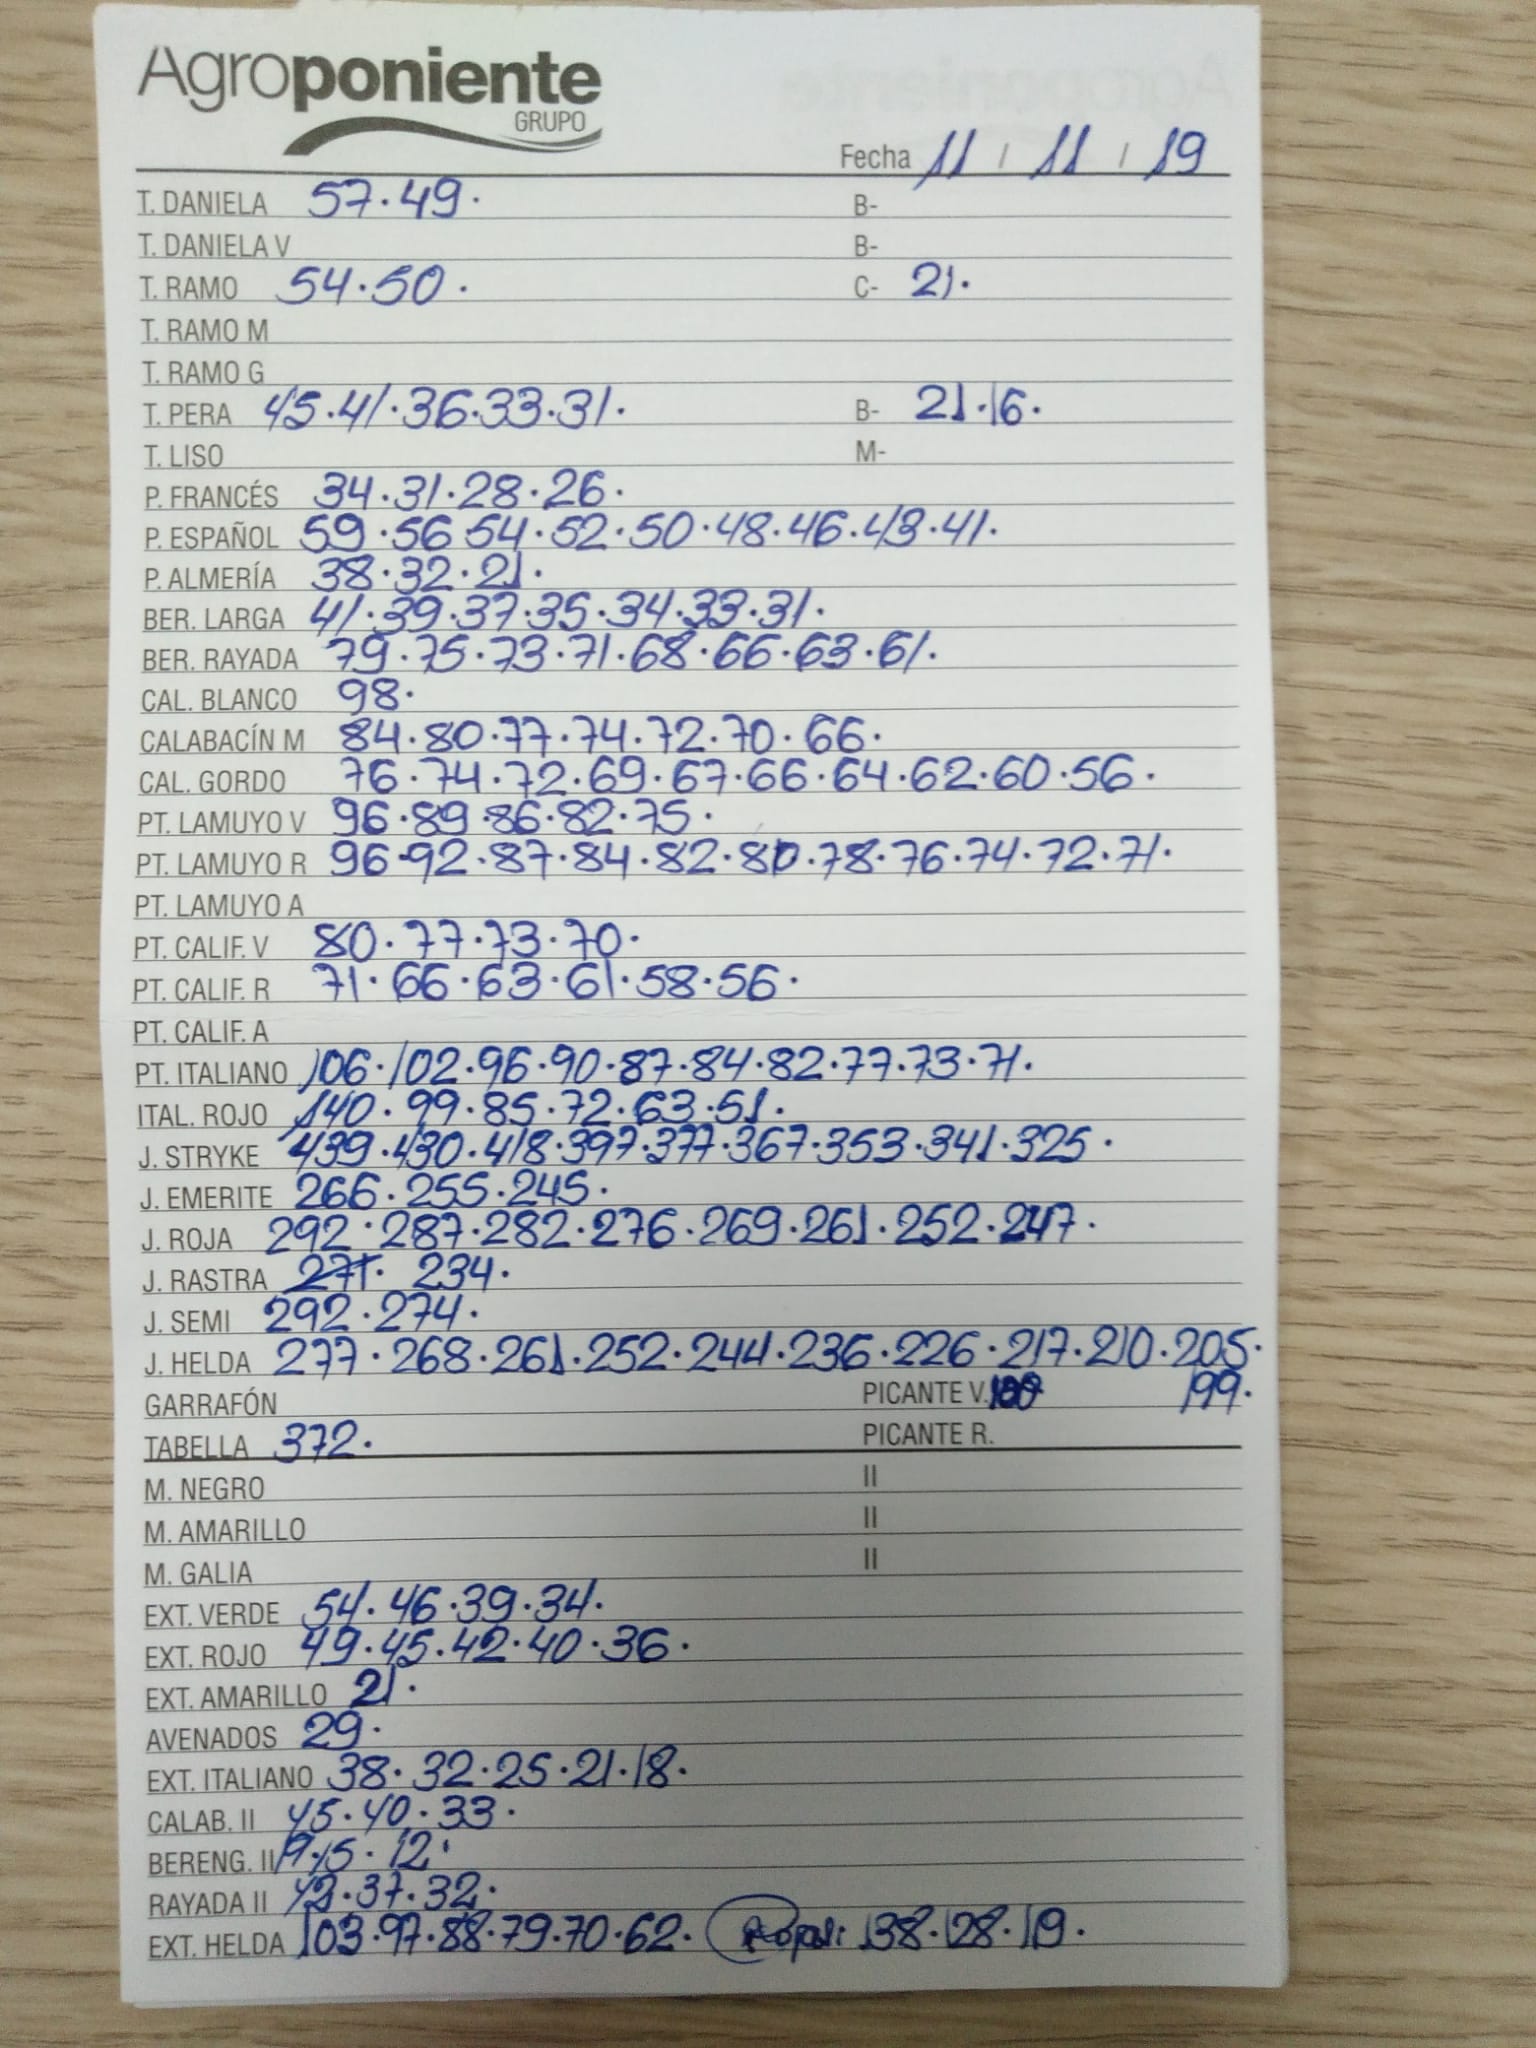 Agroponiente
GRUPO
Fecha 11 / 11 / 19
T. DANIELA 57.49. B-
T. DANIELA V B-
T. RAMO 54.50. C- 21.
T. RAMO M
T. RAMO G
T. PERA 45.41.36.33.31. B- 21.16.
T. LISO M-
P. FRANCÉS 34.31.28.26.
P. ESPAÑOL 59.56 54.52.50.48.46.43.41.
P. ALMERÍA 38.32.21.
BER. LARGA 41.39.37.35.34.33.31.
BER. RAYADA 79.75.73.71.68.66.63.61.
CAL. BLANCO 98.
CALABACÍN M 84.80.77.74.72.70.66.
CAL. GORDO 76.74.72.69.67.66.64.62.60.56.
PT. LAMUYO V 96.89.86.82.75.
PT. LAMUYO R 96.92.87.84.82.80.78.76.74.72.71.
PT. LAMUYO A
PT. CALIF. V 80.77.73.70.
PT. CALIF. R 71.66.63.61.58.56.
PT. CALIF. A
PT. ITALIANO 106.102.96.90.87.84.82.77.73.71.
ITAL. ROJO 140.99.85.72.63.51.
J. STRYKE 439.430.418.397.377.367.353.341.325.
J. EMERITE 266.255.245.
J. ROJA 292.287.282.276.269.261.252.247.
J. RASTRA 271. 234.
J. SEMI 292.274.
J. HELDA 277.268.261.252.244.236.226.217.210.205.
GARRAFÓN PICANTE V. 199.
TABELLA 372. PICANTE R.
M. NEGRO II
M. AMARILLO II
M. GALIA II
EXT. VERDE 54.46.39.34.
EXT. ROJO 49.45.42.40.36.
EXT. AMARILLO 21.
AVENADOS 29.
EXT. ITALIANO 38.32.25.21.18.
CALAB. II 45.40.33.
BERENG. II 19.15.12.
RAYADA II 42.37.32.
EXT. HELDA 103.97.88.79.70.62. 138.128.119.